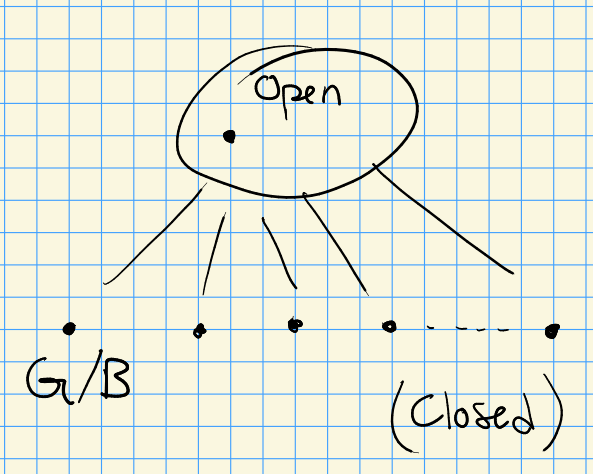 Open
G/B
(Closed)